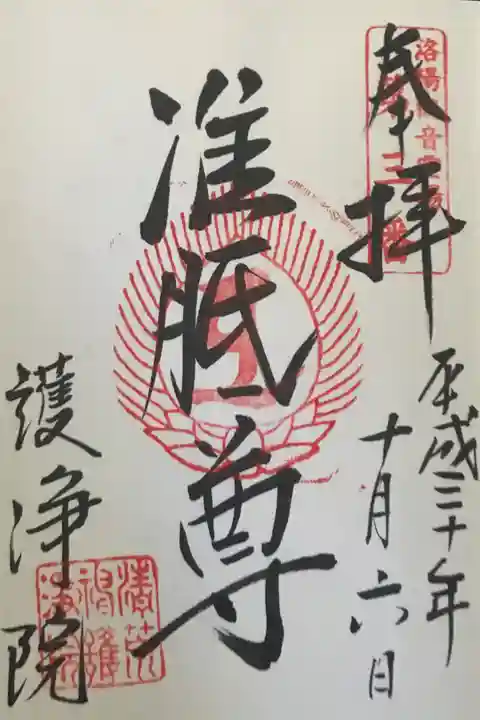 奉拝
洛陽観音霊場
第三番
平成三十年
十月六日
准胝尊
護浄院